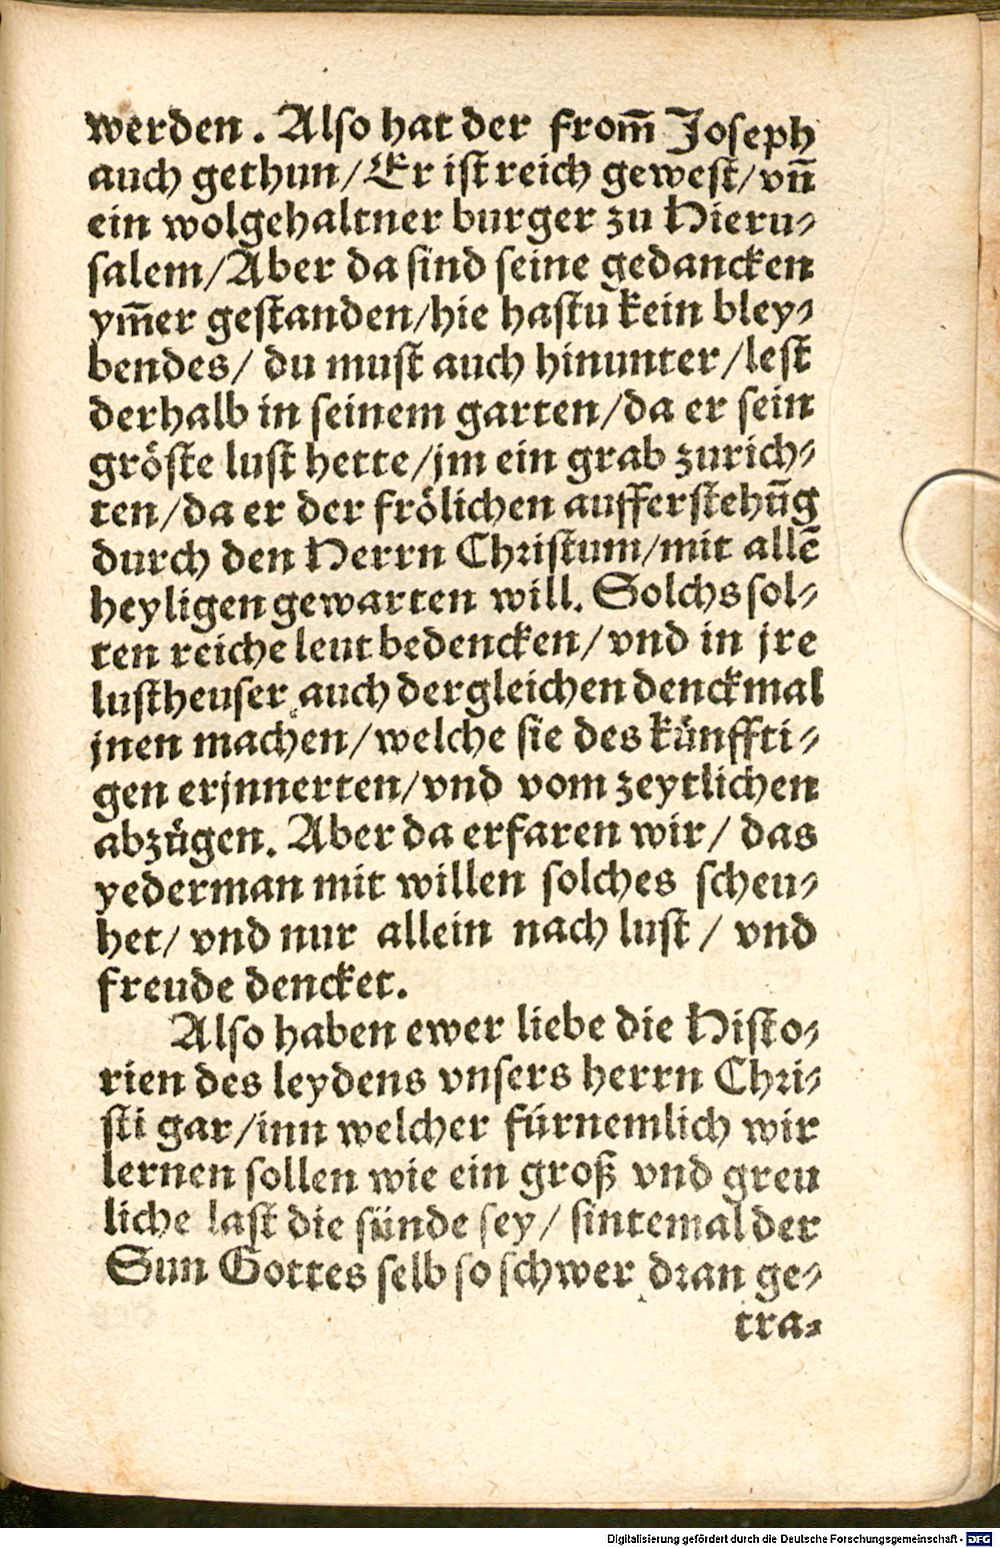 werden. Also hat der from̄ Joseph
auch gethun/Er ist reich gewest/vn̄
ein wolgehaltner burger zu Hieru-
salem/Aber da sind seine gedancken
ym̄er gestanden/hie hastu kein bley-
bendes/ du must auch hinunter/lest
derhalb in seinem garten/da er sein
gröste lust hette/jm ein grab zurich-
ten/da er der frölichen aufferstehūg
durch den Herrn Christum/mit allē
heyligen gewarten will. Solchs sol-
ten reiche leut bedencken/vnd in jre
lustheuser auch dergleichen denckmal
jnen machen/welche sie des künffti-
gen erjnnerten/vnd vom zeytlichen
abzügen. Aber da erfaren wir/ das
yederman mit willen solches scheu-
het/ vnd nur allein nach lust / vnd
freude dencket.
Also haben ewer liebe die Histo-
rien des leydens vnsers herrn Chri-
sti gar/inn welcher fürnemlich wir
lernen sollen wie ein groß vnd greu
liche last die sünde sey/ sintemal der
Sun Gottes selb so schwer dran ge-
tra-
Digitalisierung gefördert durch die Deutsche Forschungsgemeinschaft - DFG